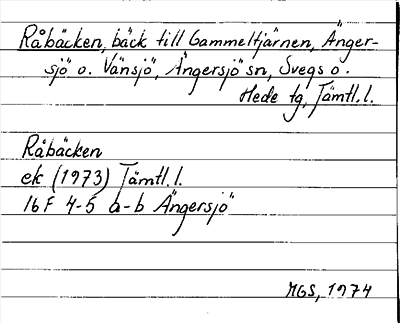 Råbäcken, bäck till Gammeltjärnen, Änger-
sjö o. Vänsjö, Ängersjö sn, Svegs o.
Hede tg, Jämtl. l.
Råbäcken
ek (1973) Jämtl. l.
16F 4-5 a-b Ängersjö
MGS, 1974